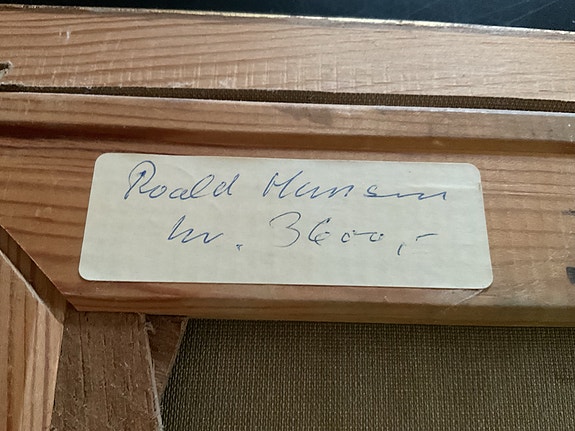 Roald Hansen
kr. 3600,-